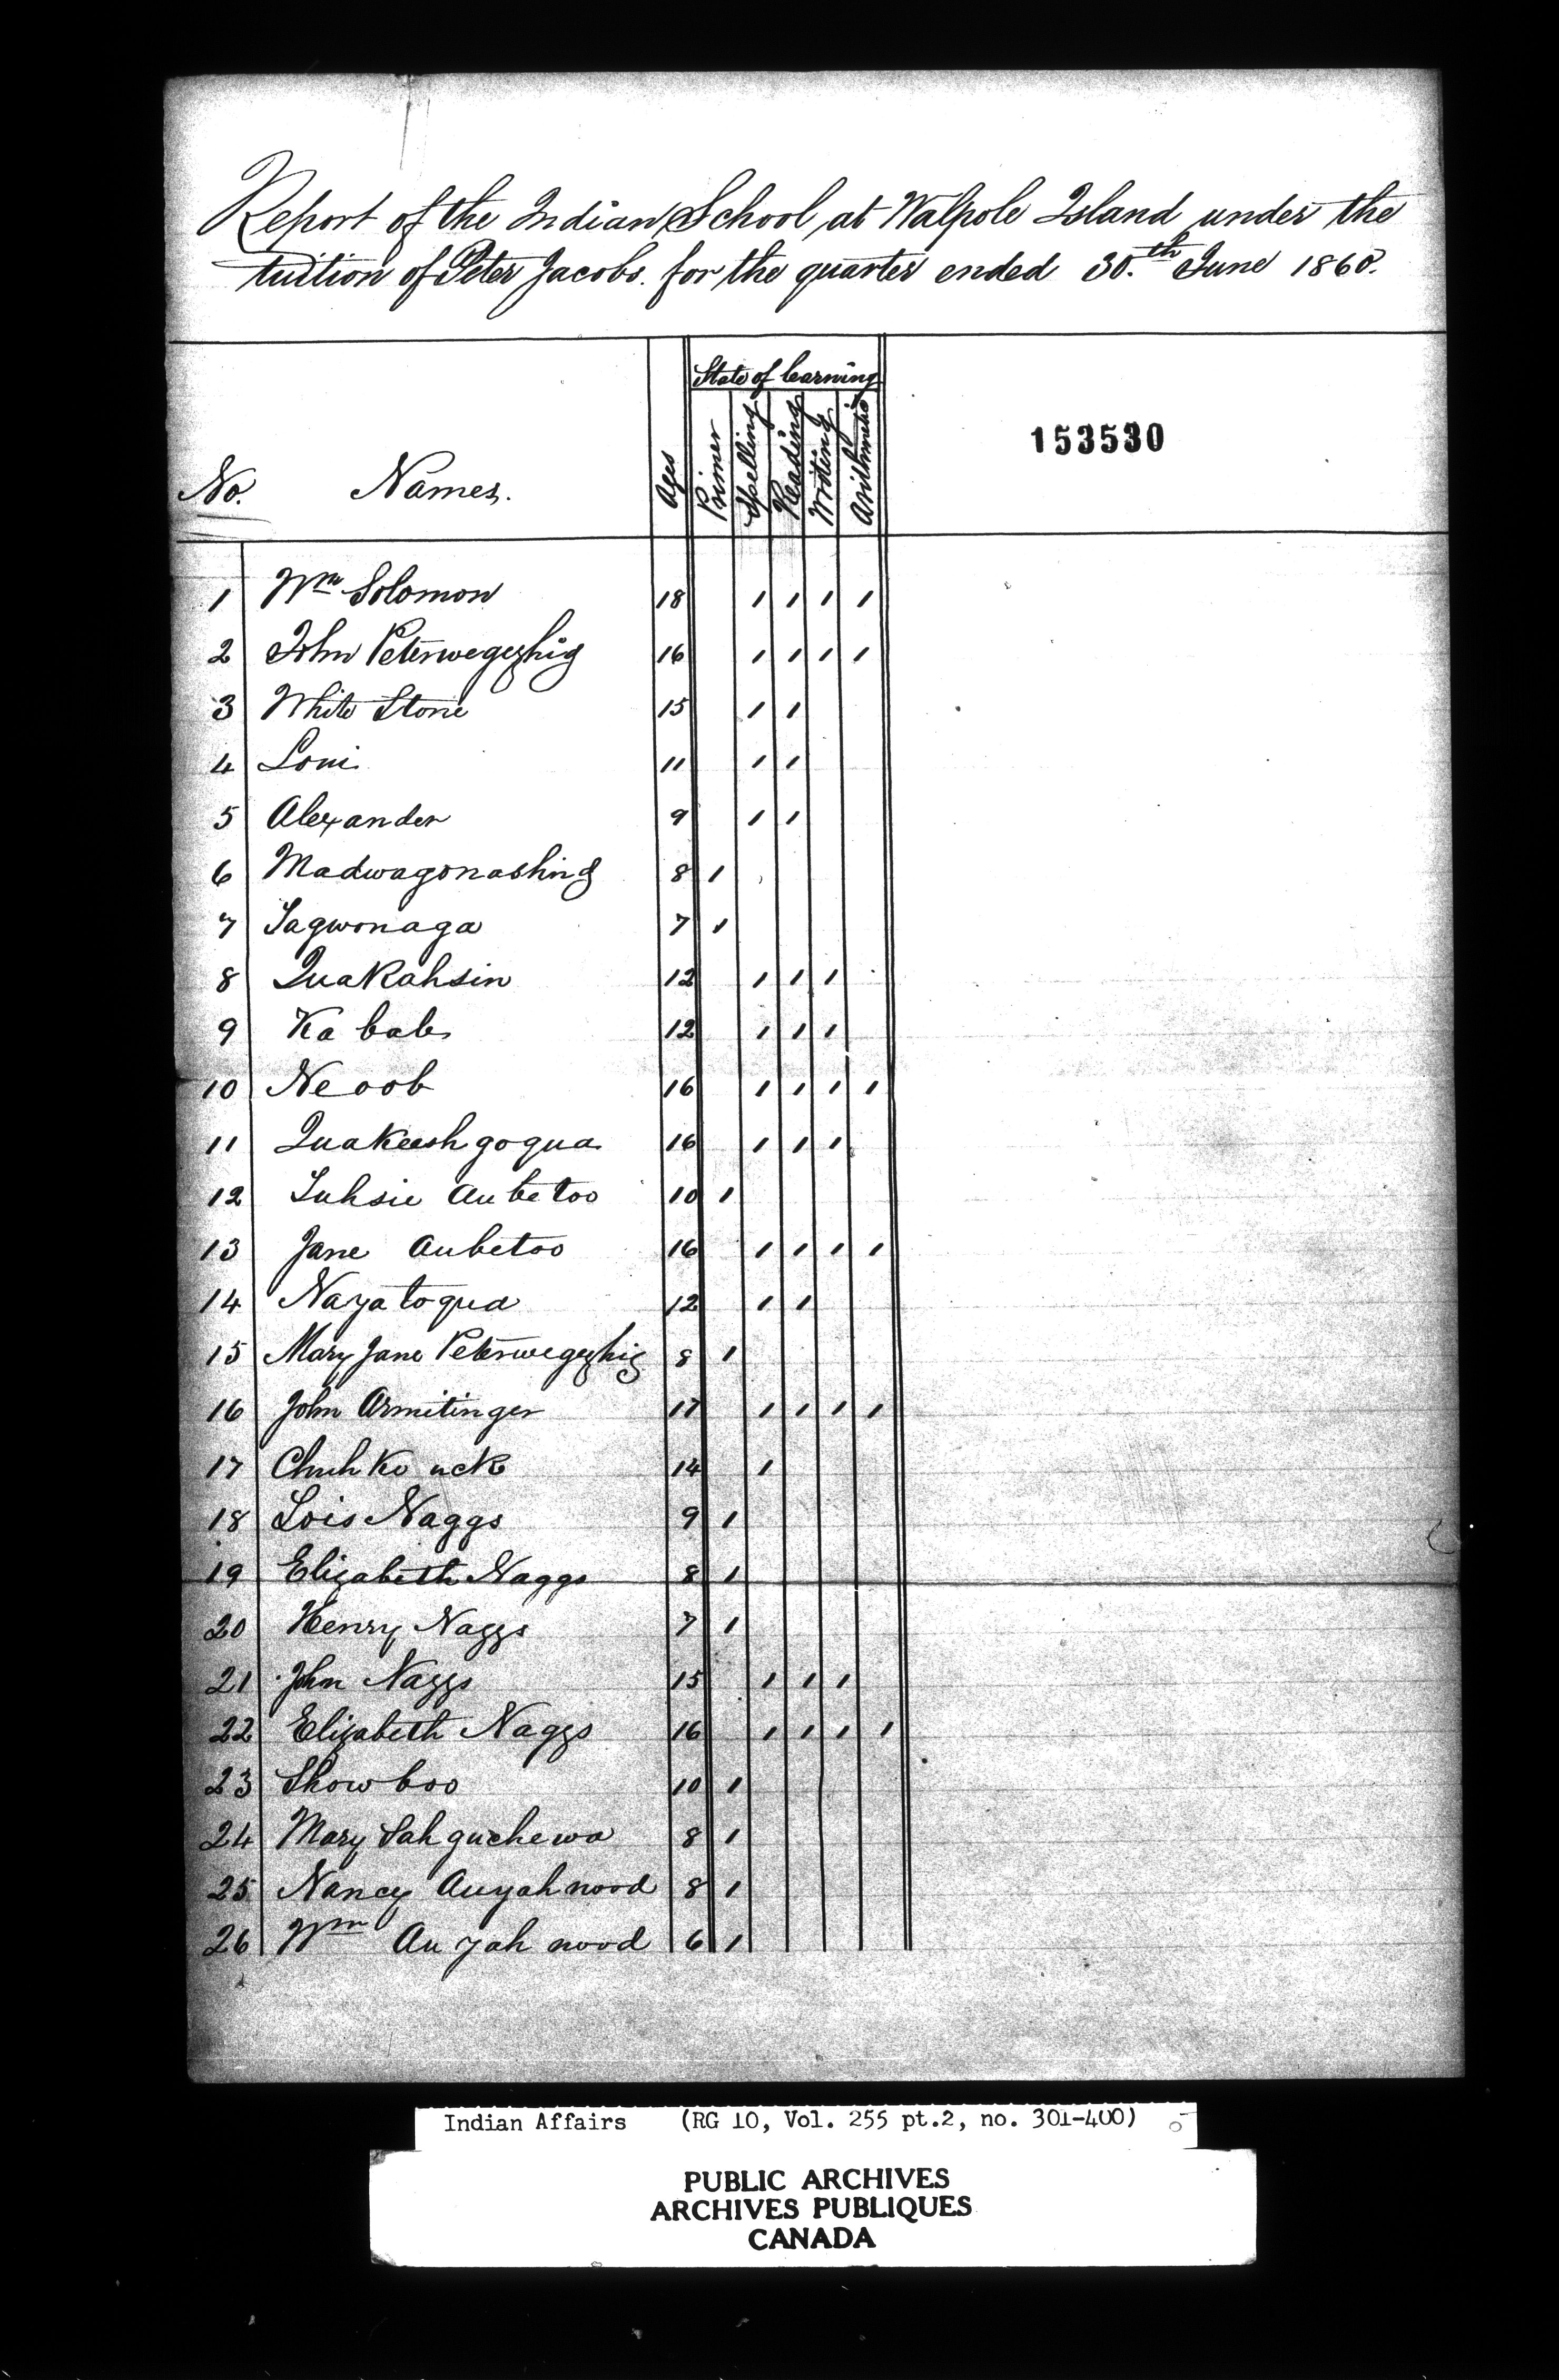 Report of the Indian School at Walpole Island under the
tuition of Peter Jacobs. for the quarter ended 30.th June 1860.
State of learning
No. Names. Ages Primer Spelling Reading Writing Arithmetic
153530
1 Wm Solomon 18 1 1 1 1
2 John Peterwegezhig 16 1 1 1 1
3 White Stone 15 1 1
4 11 1 1
5 Alexander 9 1 1
6 Madwagonashing 8 1
7 7 1
8 Quakahsin 12 1 1 1
9 Ka bab 12 1 1 1
10 Neoob 16 1 1 1 1
11 Quakeesh goqua 16 1 1 1
12 Aubetoo 10 1
13 Jane Aubetoo 16 1 1 1 1
14 Nayatoqua 12 1 1
15 Mary Jane Peterwegezhig 8 1
16 John Armitinger 17 1 1 1 1
17 14 1
18 Lois Naggs 9 1
19 Elizabeth Naggs 8 1
20 Henry Naggs 7 1
21 John Naggs 15 1 1 1
22 Elizabeth Naggs 16 1 1 1 1
23 Showboo 10 1
24 Mary 8 1
25 Nancy Auyahnood 8 1
26 Wm Au yah nood 6 1
Indian Affairs (RG 10, Vol. 255 pt.2, no. 301-400)
PUBLIC ARCHIVES
ARCHIVES PUBLIQUES
CANADA